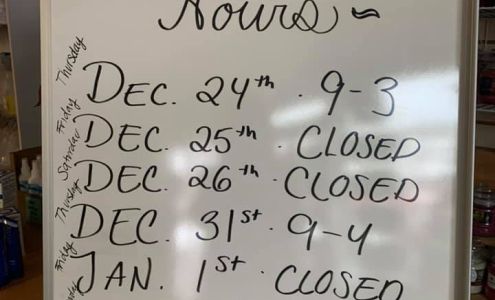 Hours~
Thursday DEC. 24th · 9-3
Friday DEC. 25th · CLOSED
Saturday DEC. 26th · CLOSED
Thursday DEC. 31st · 9-4
Friday JAN. 1st · CLOSED